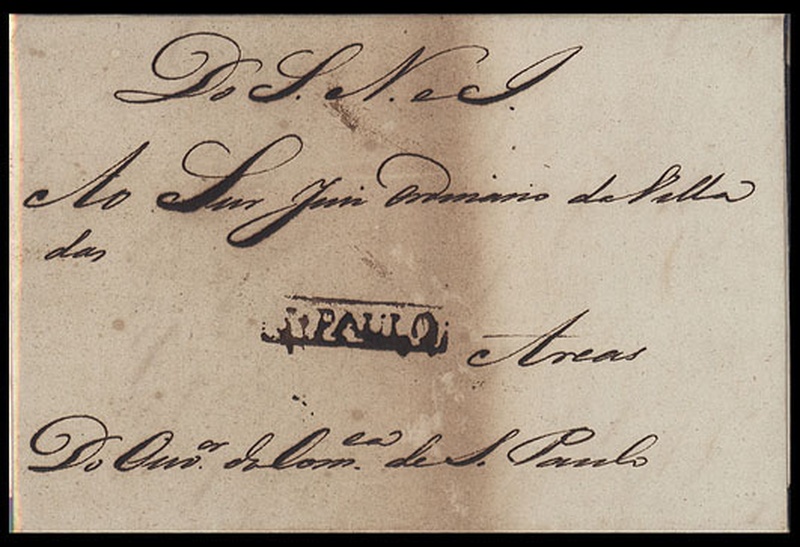 Do S. N. e I.
Ao Snr Juis Ordinario da Villa
das
S. PAULO
Areas
Do Ouv.or da Com.ca de S. Paulo